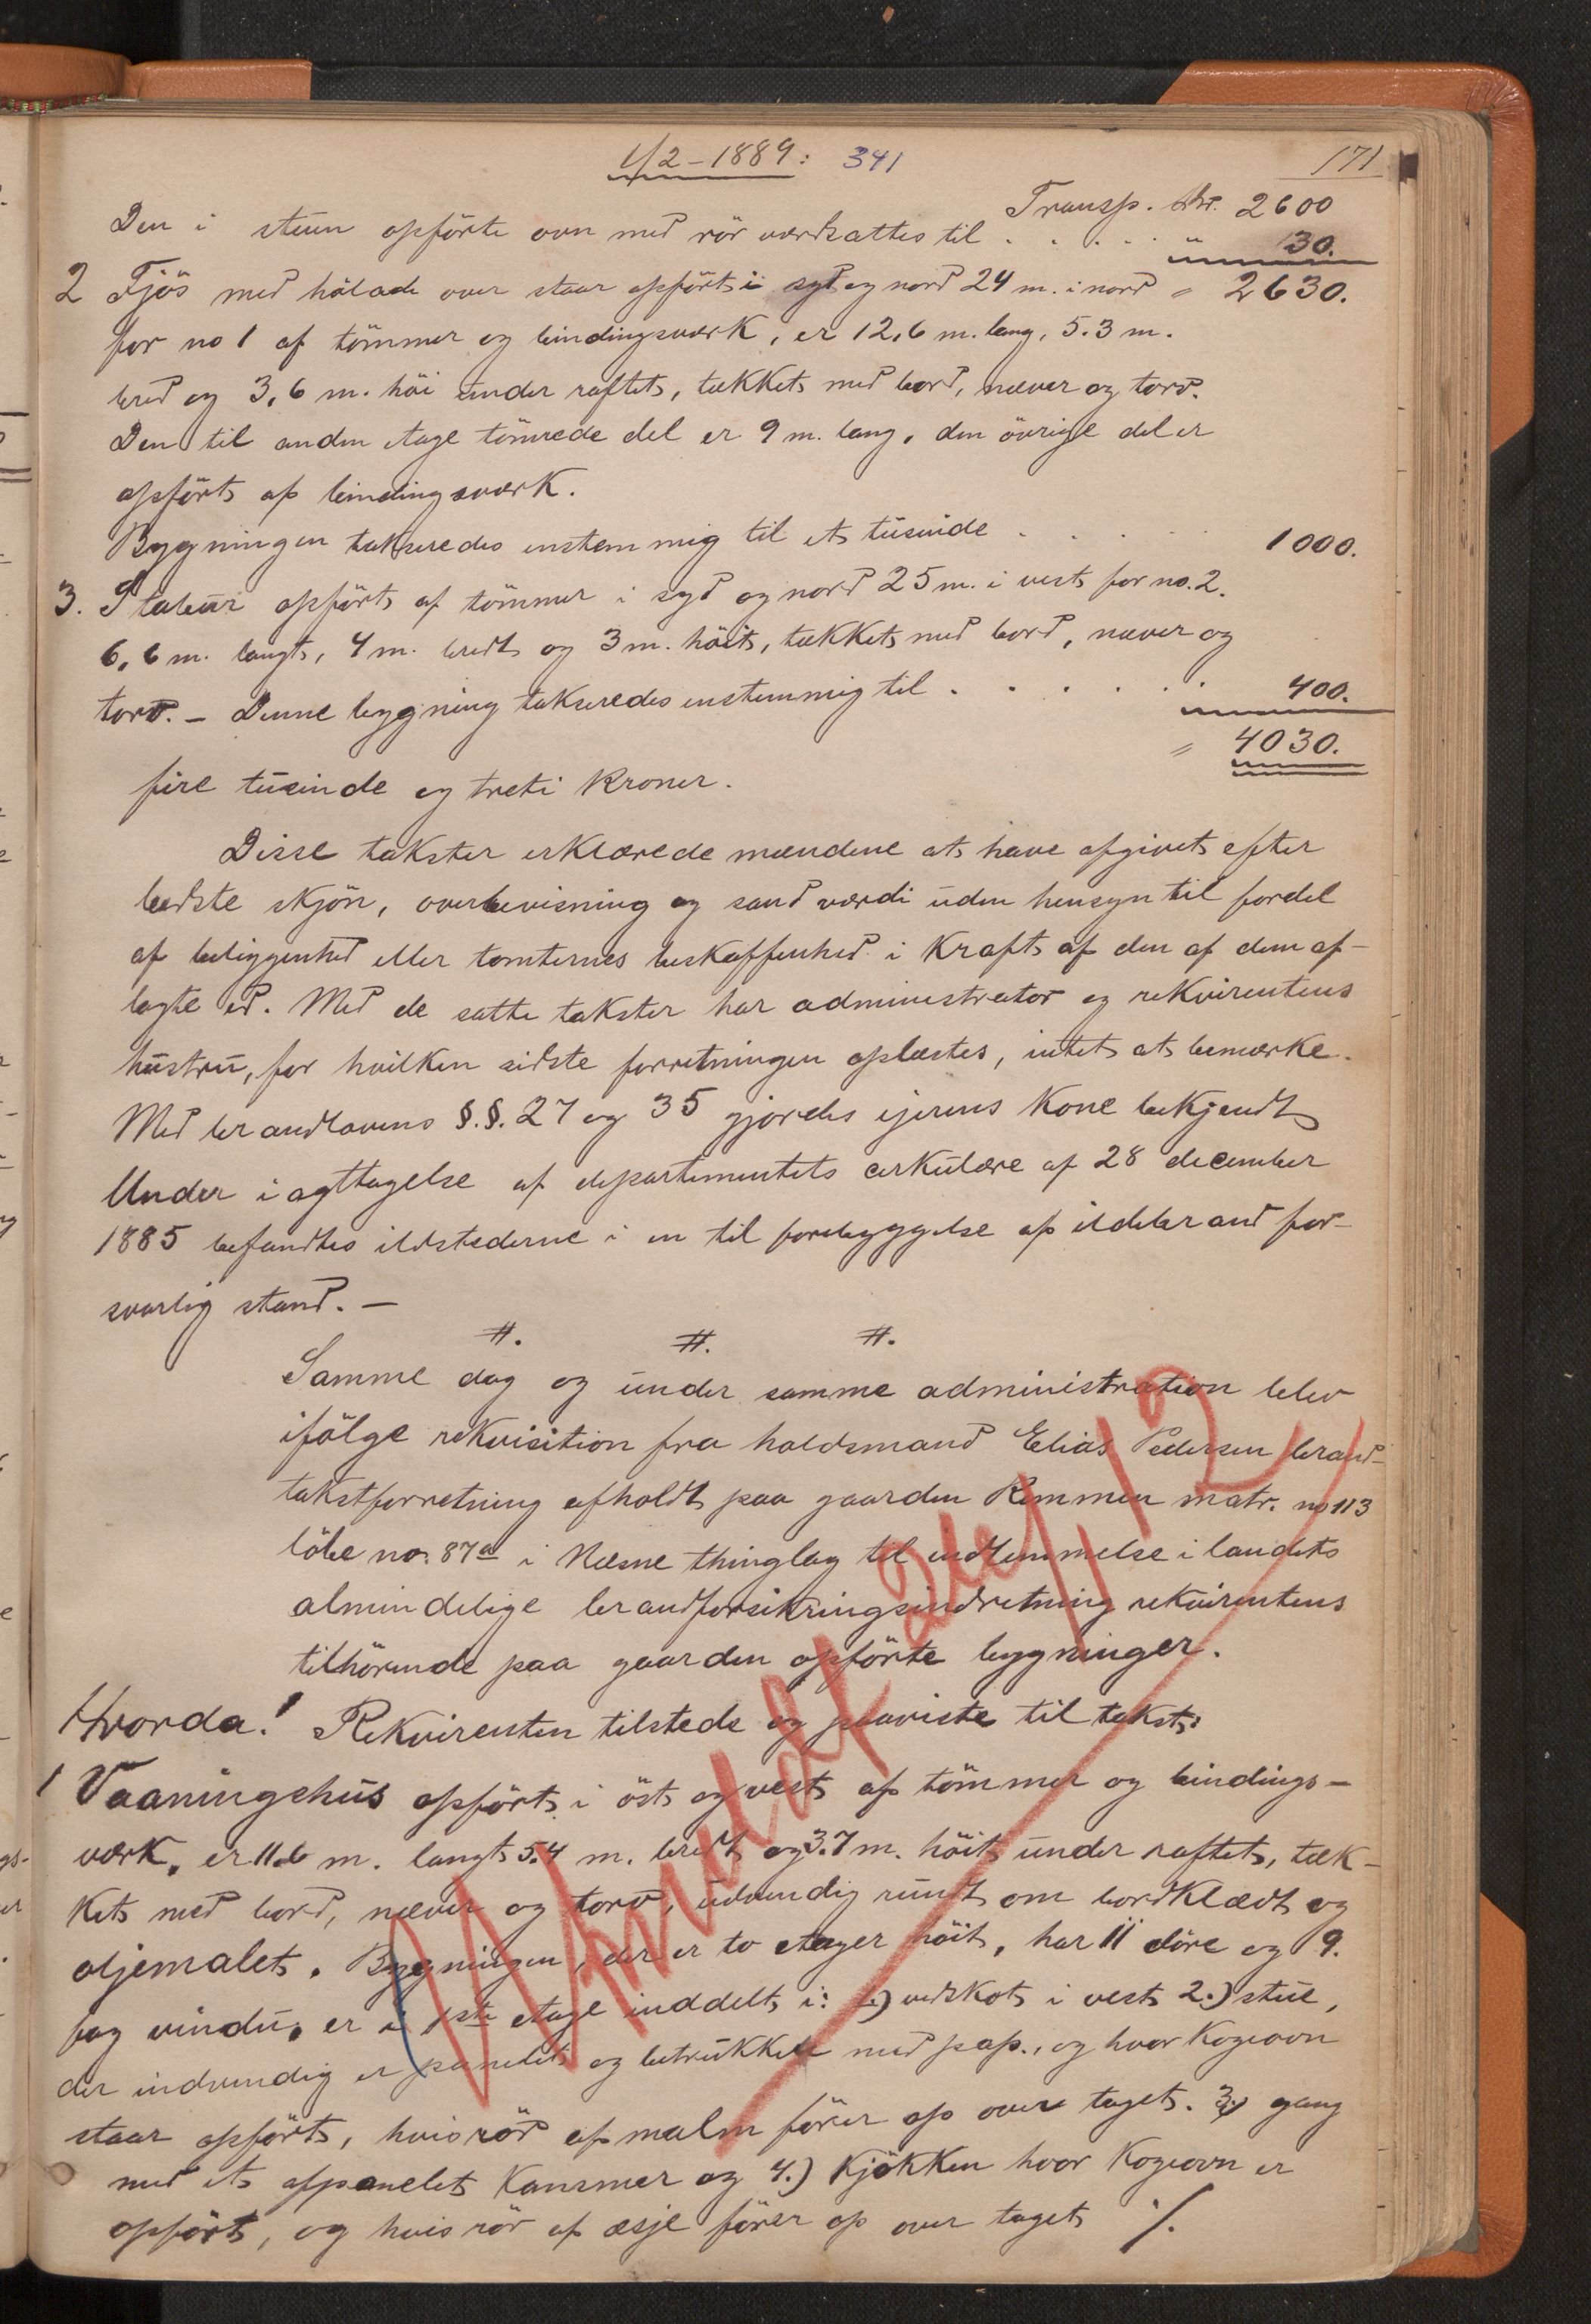 1/2-1889: 341
171
Transp. Kr. 2600
Den i stuen opförte ovn med rör værdsattes til . . . . . " 30.
2 Fjös med hölade over staar opfört i syd og nord 24 m. i nord = 2630.
for no 1 af tömmer og bindingsværk, er 12,6 m. lang, 5.3 m.
bred og 3,6 m. höi under raftet, tækket med bord, næver og torv.
Den til anden etage tömrede del er 9 m. lang, den övrige del er
opfört af bindingsværk.
Bygningen takseredes enstemmig til et tusinde . . . . . 1000.
3. Stabur opfört af tömmer i syd og nord 25 m. i vest for no. 2.
6,6 m. langt, 4 m. bredt og 3 m. höit, tækket med bord, næver og
torv. - Denne bygning takseredes enstemmig til . . . . . . 400.
= 4030.
fire tusinde og treti Kroner.
Disse takster erklærede mændene at have afgivet efter
bedste skjön, overbevisning og sand værdi uden hensyn til fordel
af beliggenhed eller tomternes beskaffenhed i Kraft af den af dem af-
lagte ed. Med de satte takster har administrator og rekvirentens
hustru, for hvilken sidste forretningen oplæstes, intet at bemærke.
Med brandlovens §.§. 27 og 35 gjordes ejerens Kone bekjendt
Under iagttagelse af departementets cirkulære af 28 december
1885 befandtes ildstederne i en til forebyggelse af ildebrand for-
svarlig stand. -
#. #. #.
Samme dag og under samme administration blev
ifölge rekvisition fra haldsmand Elias Pedersen brand-
takstforretning afholdt paa gaarden Remmen matr. no 113
löbe no. 87a i Næsne thinglag til indlemmelse i landets
almindelige brandforsikringsindretning rekvirentens
tilhörende paa gaarden opförte bygninger.
Hvorda! Rekvirenten tilstede og paaviste til takst:
1 Vaaningshus opfört i öst og vest af tömmer og bindings-
værk, er 11.6 m. langt 5.4 m. bredt og 3.7 m. höit under raftet, tæk-
ket med bord, næver og torv, udvendig rundt om bordklædt og
oljemalet. Bygningen, der er to etager höit, har 11 döre og 9.
fag vindu, er i 1ste etage inddelt i: 1.) vedskot i vest 2.) stue,
der indvendig er panelet og betrukket med pap., og hvor Kogeovn
staar opfört, hvis rör af malm förer op over taget. 3.) gang
med et afpanelet Kammer og 4.) Kjökken hvor Kogeovn er
opfört, og hvis rör af æsje förer op over taget ./.